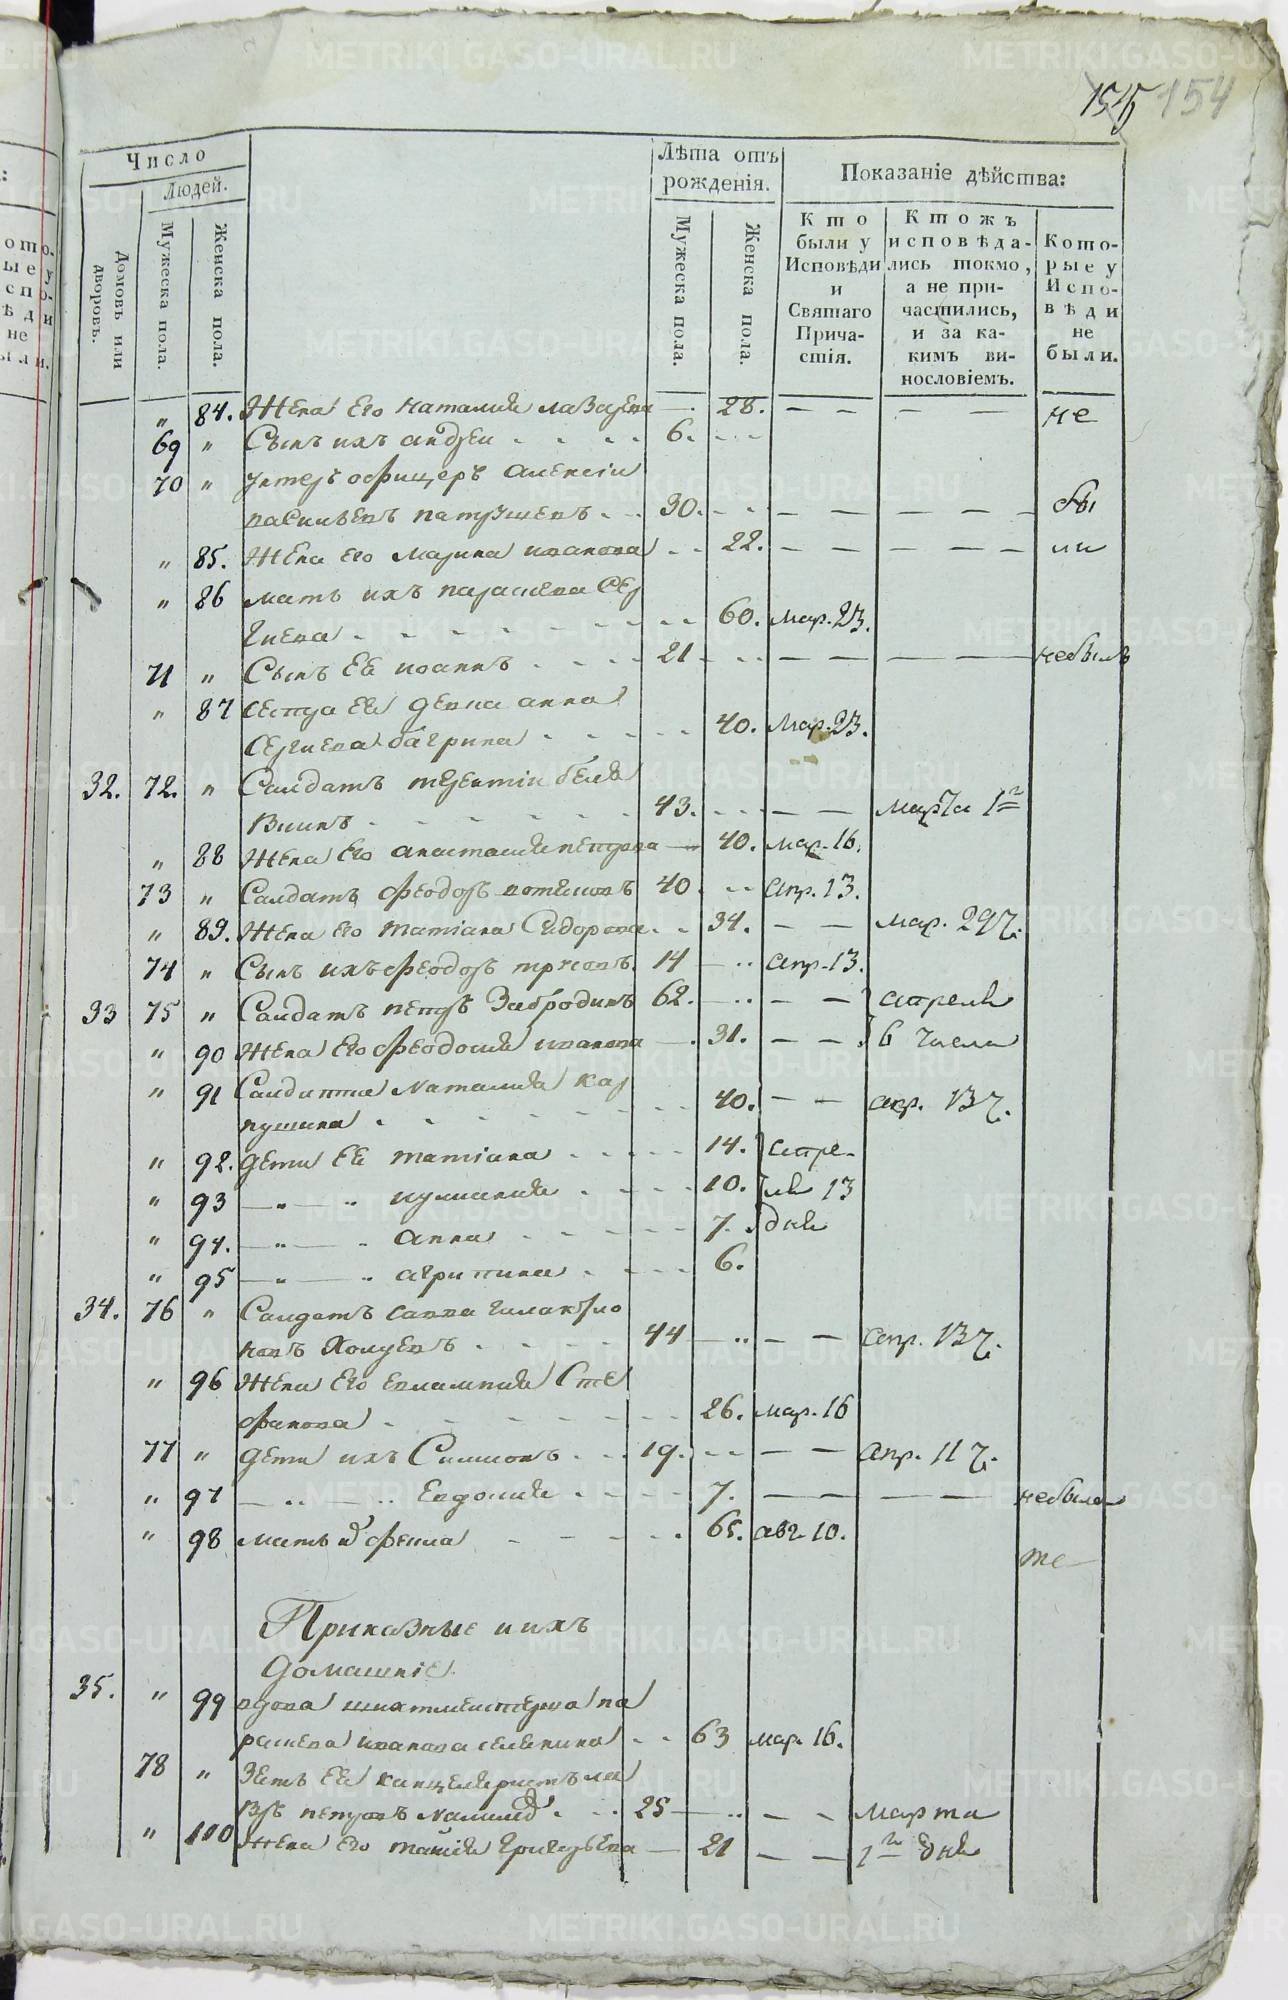 155 154
Число
Людей.
Домовъ или дворовъ.
Мужеска пола.
Женска пола.
Лѣта отъ рожденія.
Мужеска пола.
Женска пола.
Показаніе дѣйства:
Кто были у Исповѣди и Святаго Причастія.
Ктожъ исповѣдались токмо, а не причастились, и за какимъ винословіемъ.
Которые у Исповѣди не были.
„ 84. Жена его наталия лазарева — 28. — — — — не
69 „ Сынъ ихъ андреи 6.
70 „ унтеръ офицеръ алексіи
васильевъ патрушевъ 30. — — — — бы
„ 85. Жена его марина иванова 22. — — — — ли
„ 86 мать ихъ парасковa Сер
гиева 60. мар. 23.
71 „ Сынъ Ея иоаннъ 21 — — — — небылъ
„ 87 сестра Ея девка анна
Сергиева багрина 40. мар. 23.
32. 72. „ Салдатъ терентіи беля
43. — — марта 1го
„ 88 Жена Его анастасия петрова — 40. мар. 16.
73 „ Салдатъ феодоръ 40 апр. 13.
„ 89. Жена Его татіана Сидорова 34. — — мар. 29 ч.
74 „ Сынъ ихъ феодоръ 14 — апр. 13.
33 75 „ Салдатъ петръ Забродинъ 62. — — апреля
„ 90 Жена Его феодосия иванова — 31. — — 6 числа
„ 91 Салдатка наталия кар
пушина 40. — — апр. 13 ч.
„ 92. дети Ея татіана 14. апре-
„ 93 — „ — „ иулиания 10. ля 13
„ 94. — „ — „ анна 7. дня
„ 95 — „ — „ агрипина 6.
34. 76 „ Салдатъ савва галактио
новъ 44 — „ — — апр. 13 ч.
„ 96 Жена Его евлампия Сте
фанова 26. мар. 16
77 „ дети ихъ Симионъ 19. — — апр. 11 ч.
„ 97 — „ — „ Евдокия 7. — — — — небыла
„ 98 мать 65. авг 10.
же
Приказные и ихъ
домашніе.
35. „ 99 вдова шихтмейстерша па
расковa иванова 63 мар. 16.
78 „ Зять Ея канцеляристъ ла
връ петровъ 25 — „ — — марта
„ 100 Жена его таисія григорьева — 21 — — 1го дня
METRIKI.GASO-URAL.RU